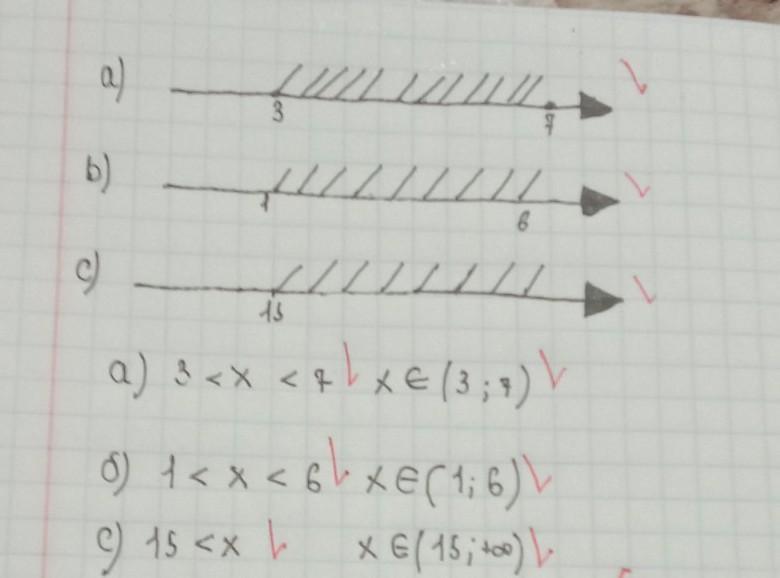 a)
3 7
b)
1 6
c)
15
a) 3 < x < 7 x ∈ (3 ; 7)
б) 1 < x < 6 x ∈ (1; 6)
c) 15 < x x ∈ (15; +∞)